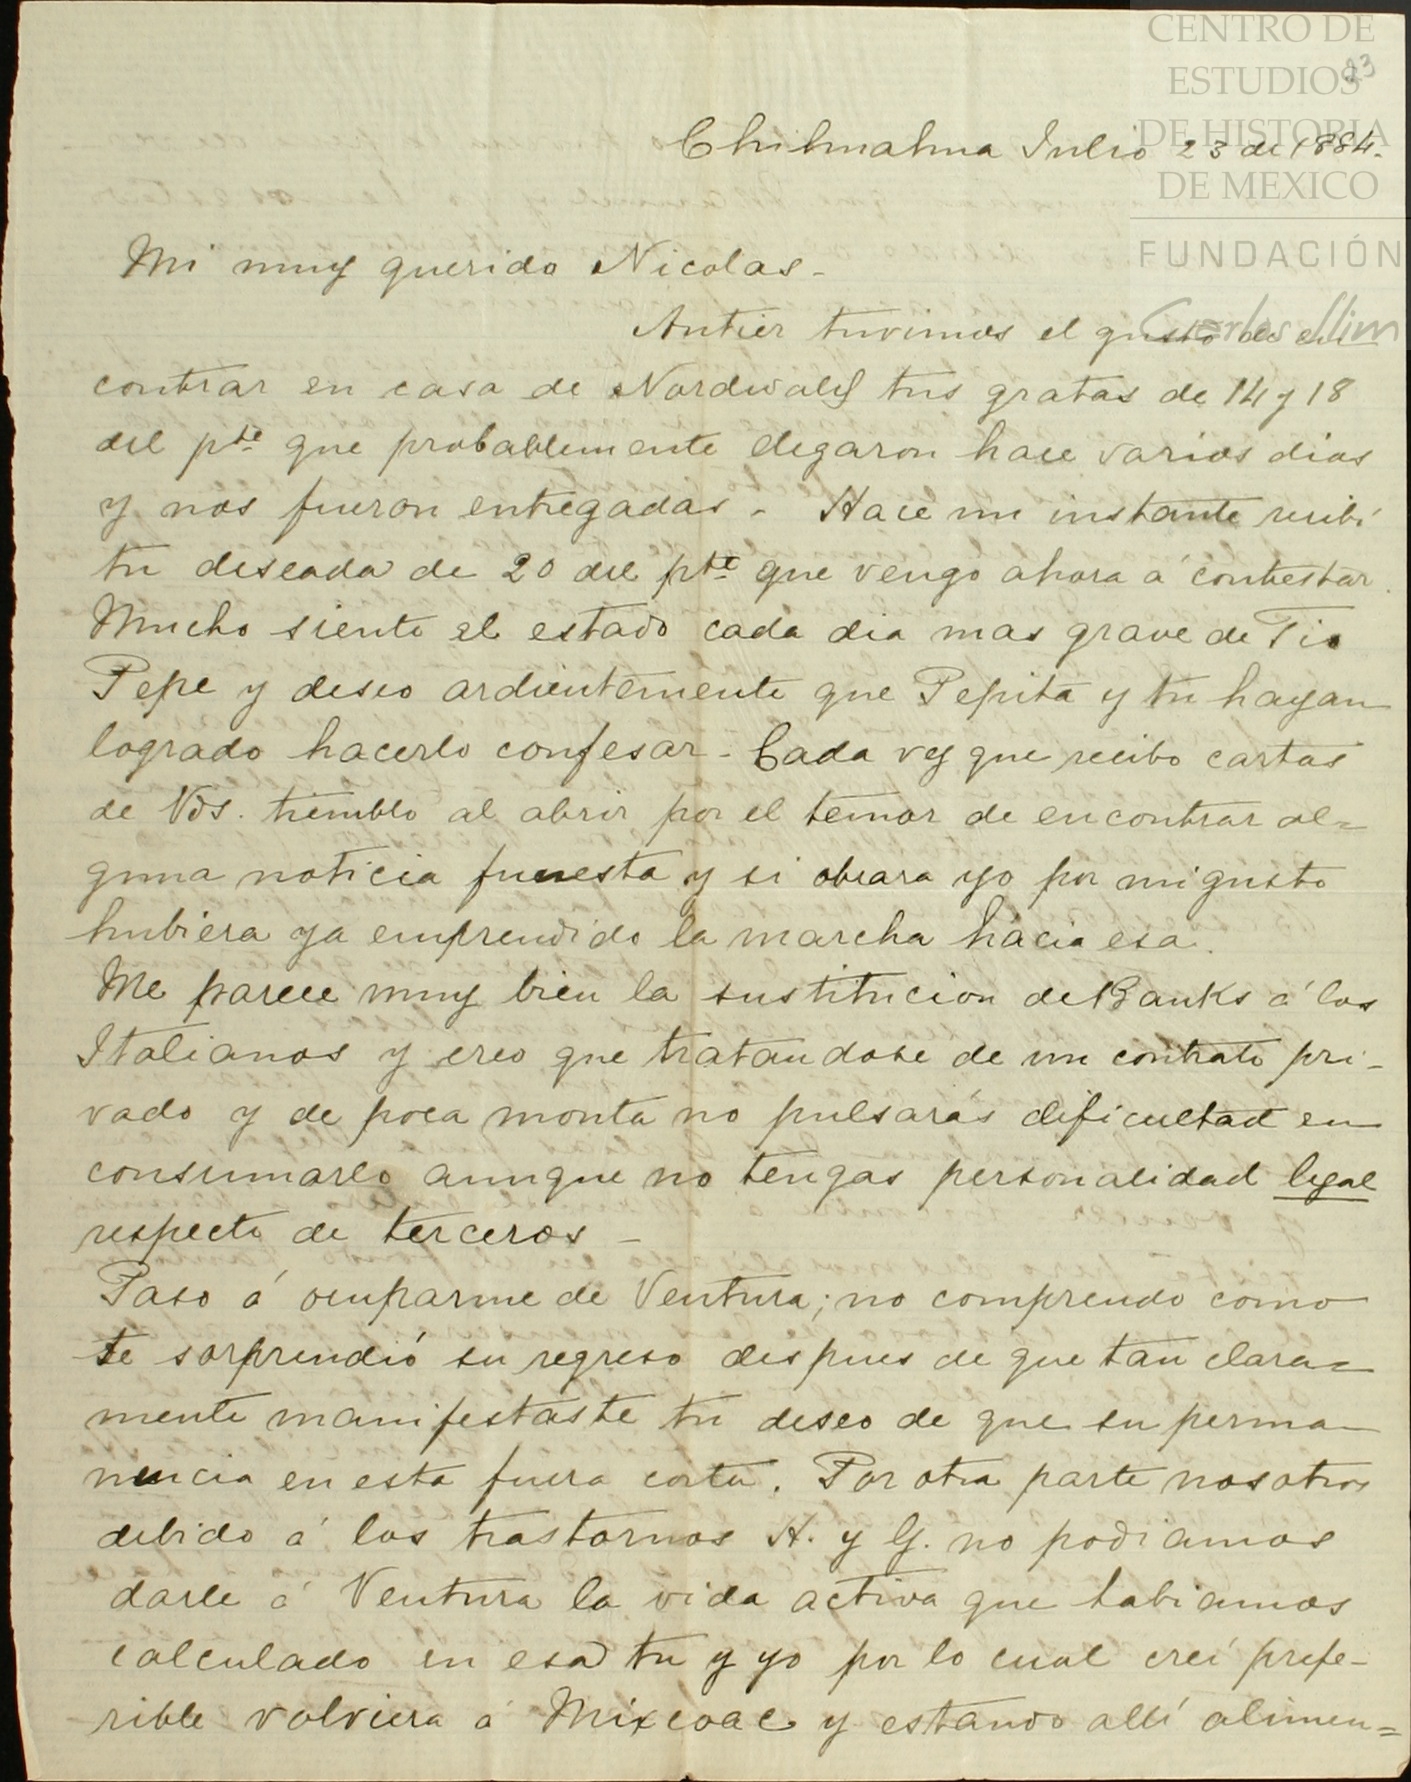 CENTRO DE
ESTUDIOS
DE HISTORIA
DE MEXICO
FUNDACIÓN
Carlos Slim
23
Chihuahua Julio 23 de 1884.
Mi muy querido Nicolas -
Antier tuvimos el gusto de en
contrar en casa de Nordwald tus gratas de 14 y 18
del pte que probablemente llegaron hace varios dias
y nos fueron entregadas. Hace un instante recibí
tu deseada de 20 del pte que vengo ahora á contestar.
Mucho siento el estado cada dia mas grave de Tio
Pepe y deseo ardientemente que Pepita y tu hayan
logrado hacerlo confesar - Cada vez que recibo cartas
de Vds. tiemblo al abrir por el temor de encontrar al=
guna noticia funesta y si obrara yo por mi gusto
hubiera ya emprendido la marcha hácia esa.
Me parece muy bien la sustitucion de Banks á los
Italianos y creo que tratandose de un contrato pri-
vado y de poca monta no pulsarás dificultad en
consumarlo aunque no tengas personalidad legal
respecto de terceros -
Paso á ocuparme de Ventura; no comprendo como
te sorprendió su regreso despues de que tan clara=
mente manifestaste tu deseo de que su perma
nencia en esta fuera corta. Por otra parte nosotros
debido á los trastornos H. y G. no podiamos
darle á Ventura la vida activa que habiamos
calculado en esa tu y yo por lo cual creí prefe-
rible volviera á Mixcoac y estando allí alimen=